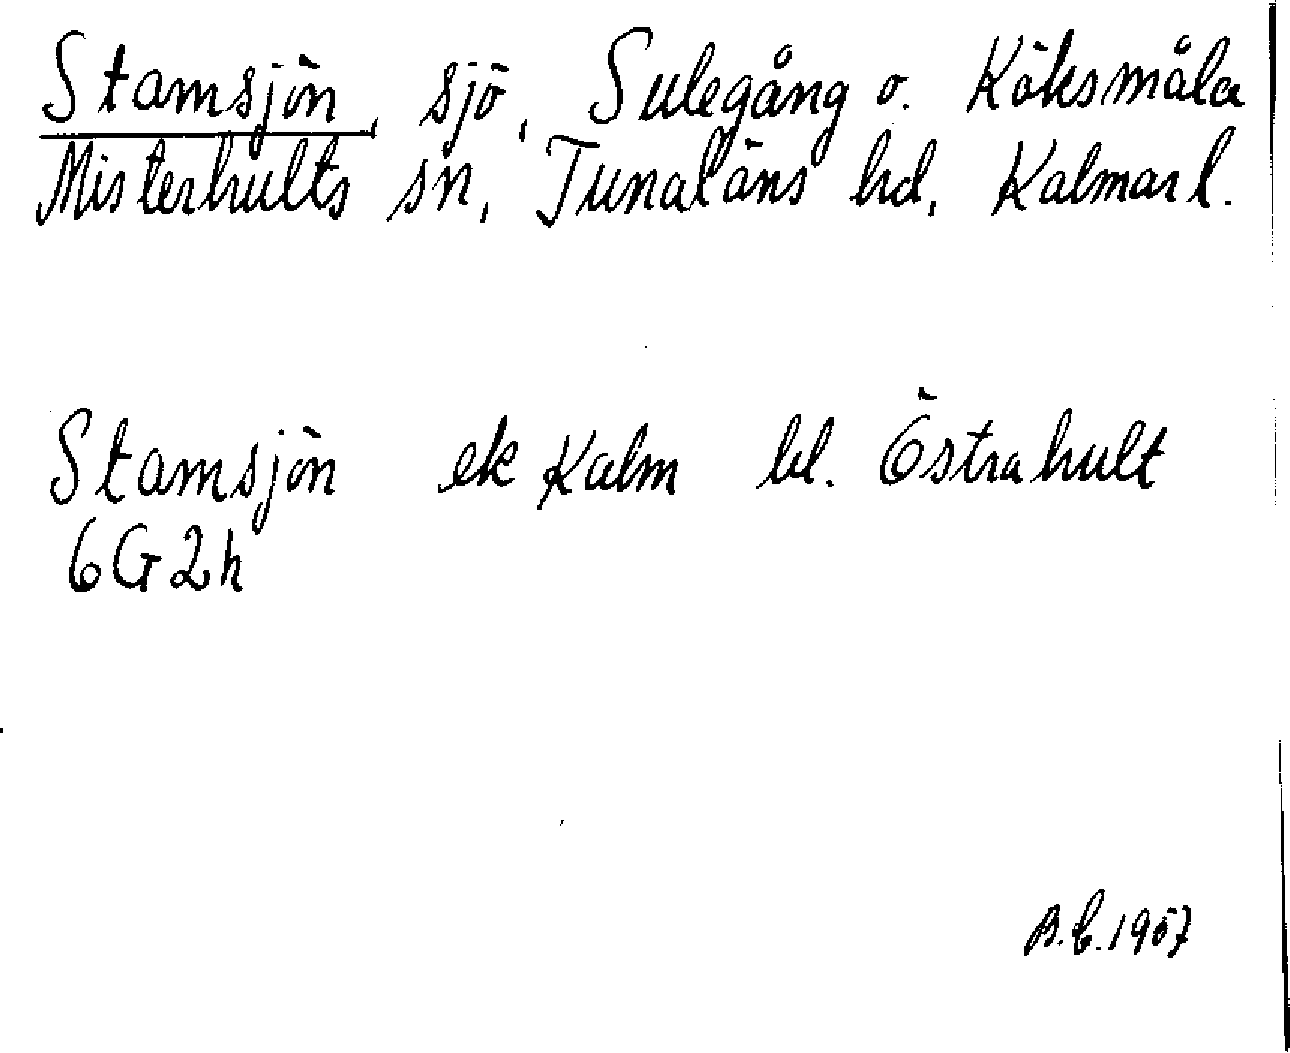 Stamsjön, sjö, Sulegång o. Köksmåla
Misterhults sn, Tunaläns hd, Kalmar l.
Stamsjön ek Kalm bl. Östrahult
6G2h